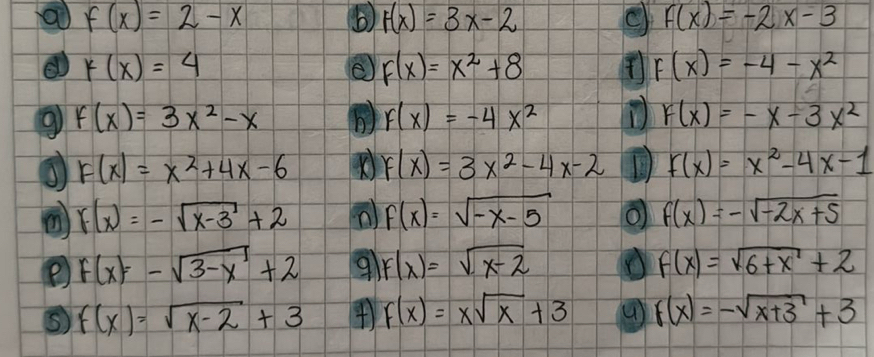 a) f(x) = 2 - x b) f(x) = 3x - 2 c) f(x) = -2x - 3
d) f(x) = 4 e) f(x) = x² + 8 f) f(x) = -4 - x²
g) f(x) = 3x² - x h) f(x) = -4x² i) f(x) = -x - 3x²
j) f(x) = x² + 4x - 6 k) f(x) = 3x² - 4x - 2 l) f(x) = x² - 4x - 1
m) f(x) = -√(x-3) + 2 n) f(x) = √(-x-5) o) f(x) = -√(-2x+5)
p) f(x) = -√(3-x) + 2 q) f(x) = √(x-2) r) f(x) = √(6+x) + 2
s) f(x) = √(x-2) + 3 t) f(x) = x√x + 3 u) f(x) = -√(x+3) + 3